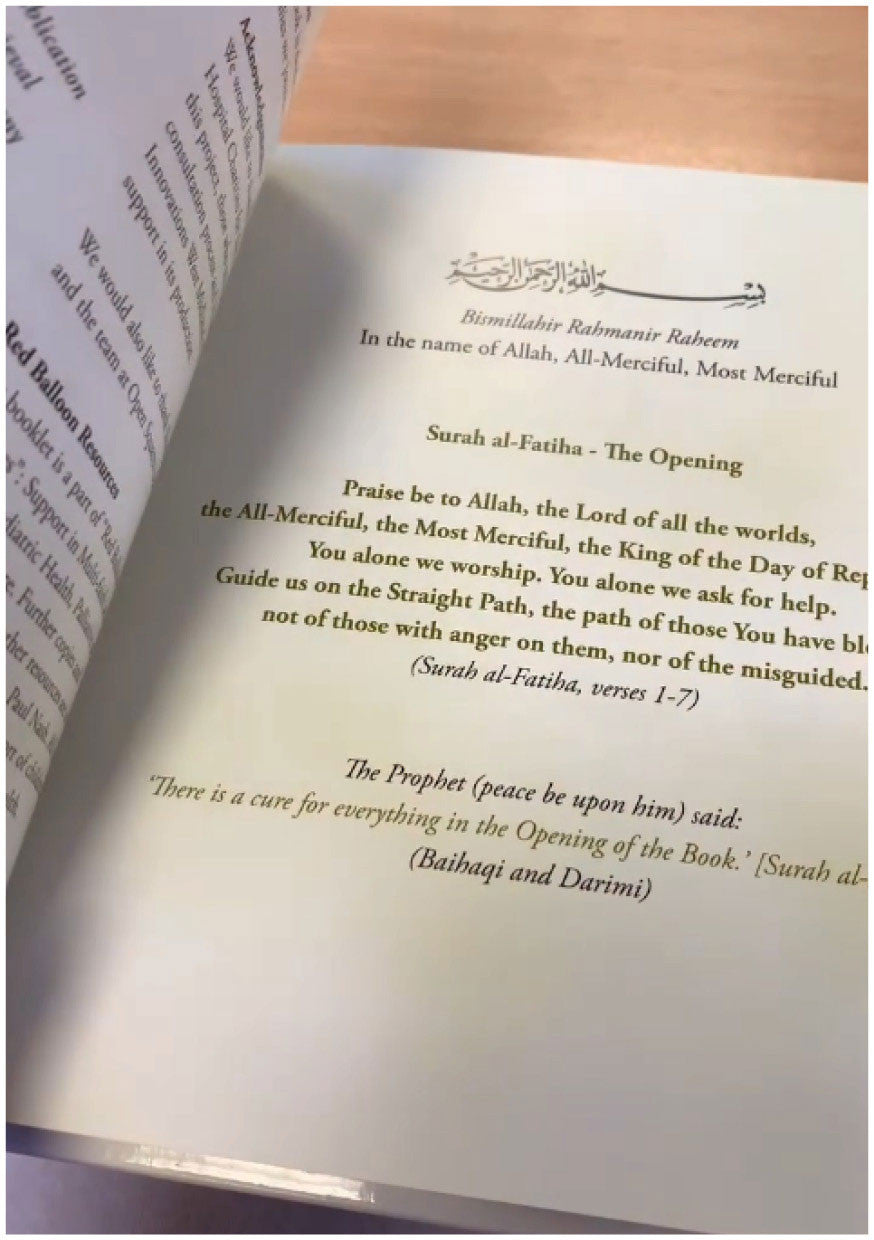 blication
Acknowledgements
We would like to
Hospital Charities
this project, those who
consultation process
Innovations West Midlands
support in its production.
We would also like to thank
and the team at Open
Red Balloon Resources
booklet is a part of "Red
Support in
Health,
Further copies
resources
Paul Nash
of
بِسْمِ اللهِ الرَّحْمٰنِ الرَّحِيْمِ
Bismillahir Rahmanir Raheem
In the name of Allah, All-Merciful, Most Merciful
Surah al-Fatiha - The Opening
Praise be to Allah, the Lord of all the worlds,
the All-Merciful, the Most Merciful, the King of the Day of Rep
You alone we worship. You alone we ask for help.
Guide us on the Straight Path, the path of those You have ble
not of those with anger on them, nor of the misguided.
(Surah al-Fatiha, verses 1-7)
The Prophet (peace be upon him) said:
‘There is a cure for everything in the Opening of the Book.’ [Surah al-
(Baihaqi and Darimi)